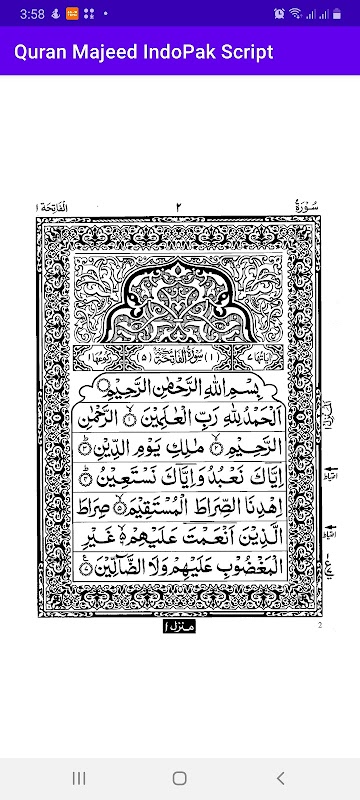 3:58
Quran Majeed IndoPak Script
سُوْرَةُ ٢ اَلْفَاتِحَة ١
اٰيَاتُهَا ٧ (١) سُوْرَةُ الْفَاتِحَةِ (٥) رُكُوْعُهَا ١
بِسْمِ اللّٰهِ الرَّحْمٰنِ الرَّحِيْمِ
اَلْحَمْدُ لِلّٰهِ رَبِّ الْعٰلَمِيْنَ ۙ﴿١﴾ الرَّحْمٰنِ
الرَّحِيْمِ ۙ﴿٢﴾ مٰلِكِ يَوْمِ الدِّيْنِ ؕ﴿٣﴾
اِيَّاكَ نَعْبُدُ وَاِيَّاكَ نَسْتَعِيْنُ ؕ﴿٤﴾
اِهْدِنَا الصِّرَاطَ الْمُسْتَقِيْمَ ۙ﴿٥﴾ صِرَاطَ
الَّذِيْنَ اَنْعَمْتَ عَلَيْهِمْ ۙ۬ غَيْرِ
الْمَغْضُوْبِ عَلَيْهِمْ وَلَا الضَّآلِّيْنَ ﴿٧﴾
منزل ١
2